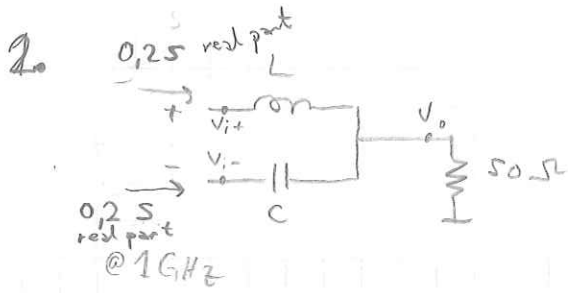 2.
0,2 S real part
L
+
Vi+
Vo
-
Vi-
50 Ω
C
0,2 S
real part
@ 1 GHz